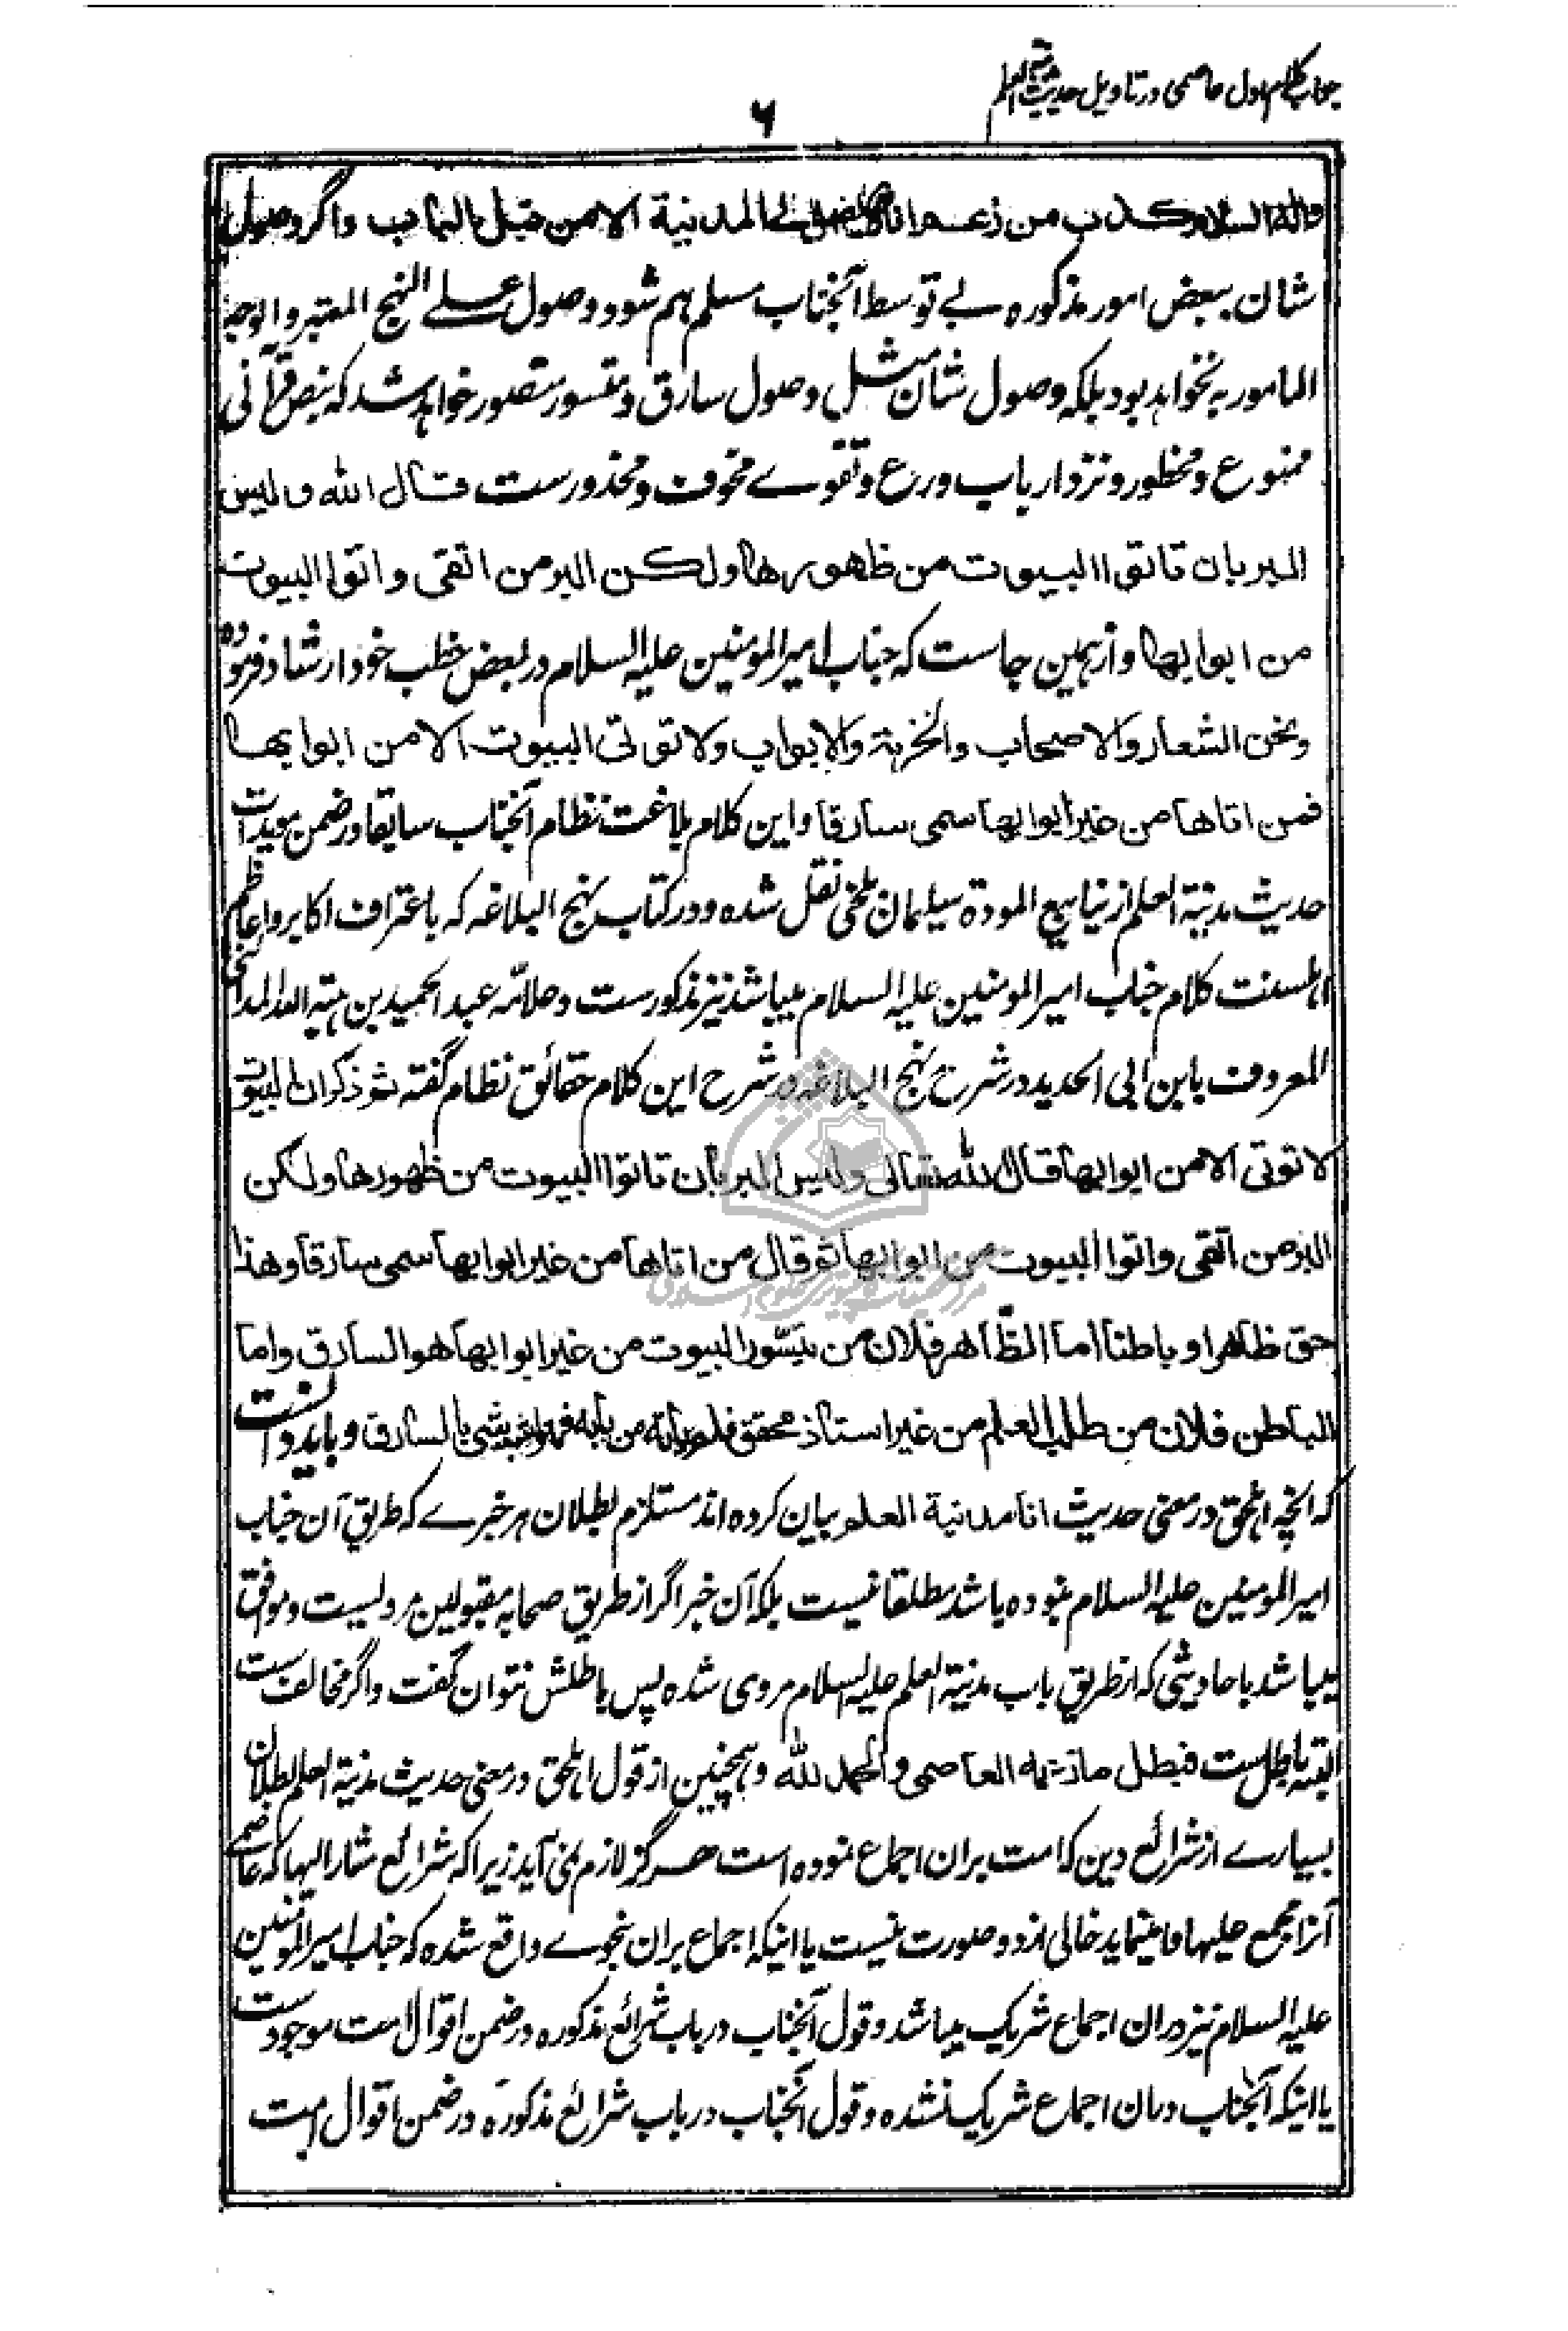 جواب کلام اول عاصمی در تاویل حدیث مدینة العلم
۶
واله السلام کذب من زعم انه یصل الی المدینة الا من قبل الباب واگر وصول
شان ببعض امور مذکوره بے توسط آنجناب مسلم هم شود وصول علے النهج المعتبر والوجه
المامور به نخواهد بود بلکه وصول شان مثل وصول سارق و متسور متصور خواهد شد که بنص قرآنی
ممنوع و محظور و نزد ارباب ورع و تقوے مخوف و محذورست قال الله ولیس
البر بان تاتوا البیوت من ظهورها ولکن البر من اتقی واتوا البیوت
من ابوابها وازهمین جاست که جناب امیر المؤمنین علیه السلام در بعض خطب خود ارشاد فرموده
ونحن الشعار والاصحاب والخزنة والابواب ولا تؤتی البیوت الا من ابوابها
فمن اتاها من غیر ابوابها سمی سارقا واین کلام بلاغت نظام آنجناب سابقا در ضمن مویدات
حدیث مدینة العلم از ینابیع المودة سیلمان بلخی نقل شده و در کتاب نهج البلاغه که باعتراف اکابر واعاظم
اهلسنت کلام جناب امیر المومنین علیه السلام میباشد نیز مذکورست و علامه عبد الحمید بن هبة الله المدائنی
المعروف بابن ابی الحدید در شرح نهج البلاغه در شرح این کلام حقائق نظام گفته ثم ذکر ان البیوت
لا تؤتی الا من ابوابها قال الله تعالی ولیس البر بان تاتوا البیوت من ظهورها ولکن
البر من اتقی واتوا البیوت من ابوابها ثم قال من اتاها من غیر ابوابها سمی سارقا وهذا
حق ظاهرا و باطنا اما الظاهر فلان من یتسور البیوت من غیر ابوابها هو السارق واما
الباطن فلان من طلب العلم من غیر استاذ محقق فلم یاته من بابه فهو اشبه شئ بالسارق و باید دانست
که آنچه اهل حق در معنی حدیث انا مدینة العلم بیان کرده اند مستلزم بطلان هر خبرے که طریق آن جناب
امیر المومنین علیه السلام نبوده باشد مطلقا نیست بلکه آن خبر اگر از طریق صحابه مقبولین مرویست و موافق
میباشد با حادیثی که از طریق باب مدینة العلم علیه السلام مروی شده پس باطلش نتوان گفت واگر مخالفست
البته باطل ست فبطل ما زعمه العاصمی والحمد لله وهمچنین از قول اهل حق در معنی حدیث مدینة العلم بطلان
بسیارے از شرائع دین که امت بران اجماع نموده است هرگز لازم نمی آید زیرا که شرائع مشار الیها که عاصمی
آنرا مجمع علیها وا مینماید خالی از دو صورت نیست یا اینکه اجماع بران بنحوے واقع شده که جناب امیر المومنین
علیه السلام نیز دران اجماع شریک میباشد و قول آنجناب در باب شرائع مذکوره در ضمن اقوال امت موجودست
یا اینکه آنجناب دران اجماع شریک نشده و قول آنجناب در باب شرائع مذکوره در ضمن اقوال امت